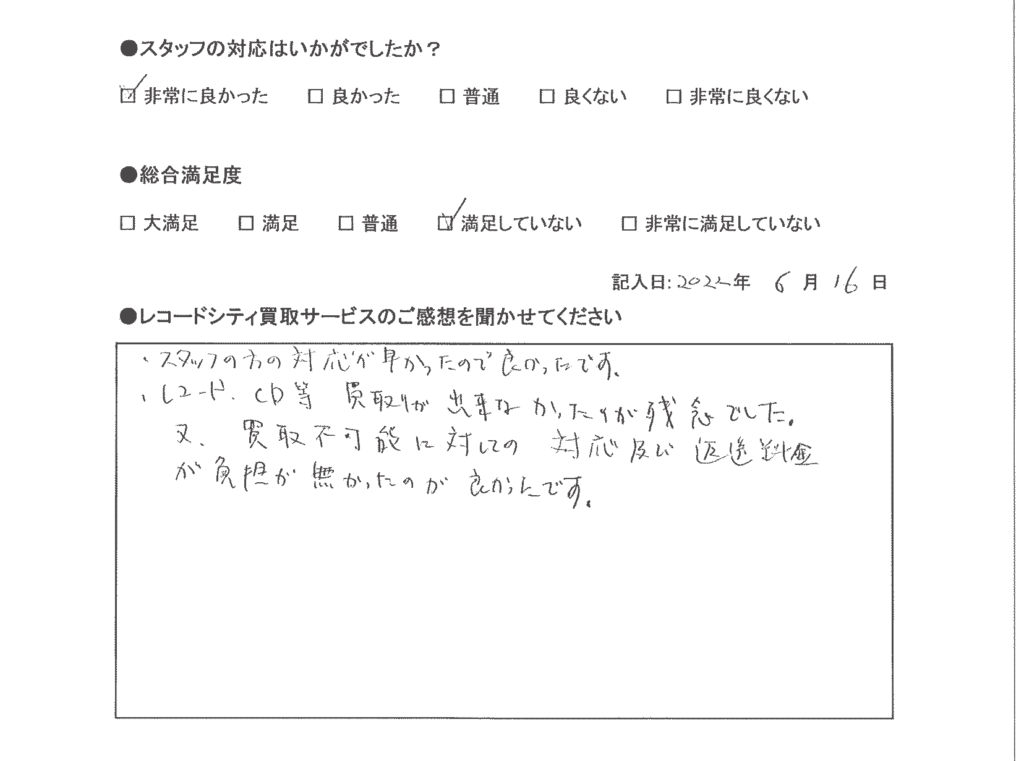 ●スタッフの対応はいかがでしたか？
☑ 非常に良かった □ 良かった □ 普通 □ 良くない □ 非常に良くない
●総合満足度
□ 大満足 □ 満足 □ 普通 ☑ 満足していない □ 非常に満足していない
記入日:2022年 6月16日
●レコードシティ買取サービスのご感想を聞かせてください
・スタッフの方の対応が早かったので良かったです。
・レコード、CD等 買取りが出来なかったのが残念でした。
又、買取不可能に対しての 対応及び 返送料金
が負担が無かったのが 良かったです。